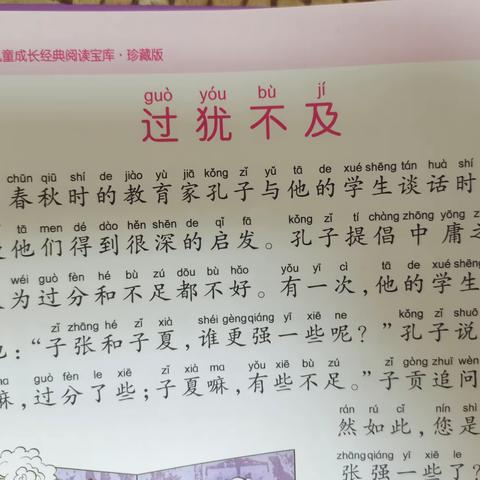 童成长经典阅读宝库·珍藏版
guò yóu bù jí
过犹不及
chūn qiū shí de jiào yù jiā kǒng zǐ yǔ tā de xué shēng tán huà shí
春秋时的教育家孔子与他的学生谈话时
tā men dé dào hěn shēn de qǐ fā kǒng zǐ tí chàng zhōng yōng
他们得到很深的启发。孔子提倡中庸
wéi guò fèn hé bù zú dōu bù hǎo yǒu yī cì tā de xué shēng
为过分和不足都不好。有一次,他的学生
zǐ zhāng hé zǐ xià shéi gèng qiáng yī xiē ne kǒng zǐ shuō
:“子张和子夏,谁更强一些呢?”孔子说
ma guò fèn le xiē zǐ xià ma yǒu xiē bù zú zǐ gòng zhuī wèn
嘛,过分了些;子夏嘛,有些不足。”子贡追问
rán rú cǐ nín shì
然如此,您是
zhāng qiáng yī xiē le
张强一些了?